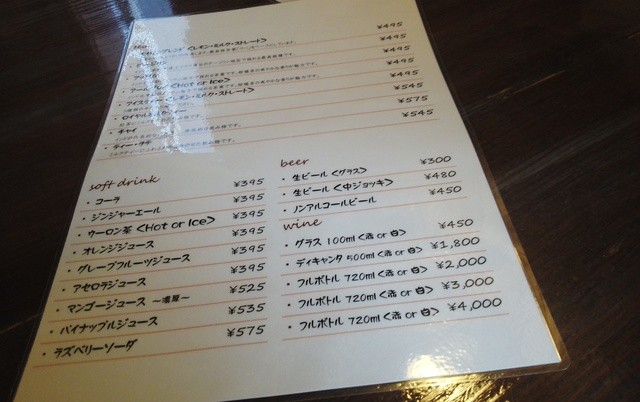 レンド <レモン・ミルク・ストレート> ¥495
¥495
¥495
<Hot or Ice> ¥495
アイスティー <レモン・ミルク・ストレート> ¥545
ロイヤルミルクティー ¥575
・チャイ ¥545
・ティー・ラテ
soft drink
・コーラ ¥395
・ジンジャーエール ¥395
・ウーロン茶 <Hot or Ice> ¥395
・オレンジジュース ¥395
・グレープフルーツジュース ¥395
・アセロラジュース ¥395
・マンゴージュース ～濃厚～ ¥525
・パイナップルジュース ¥535
・ラズベリーソーダ ¥575
beer
・生ビール <グラス> ¥300
・生ビール <中ジョッキ> ¥480
・ノンアルコールビール ¥450
wine
・グラス 100ml <赤 or 白> ¥450
・ディキャンタ 500ml <赤 or 白> ¥1,800
・フルボトル 720ml <赤 or 白> ¥2,000
・フルボトル 720ml <赤 or 白> ¥3,000
・フルボトル 720ml <赤 or 白> ¥4,000